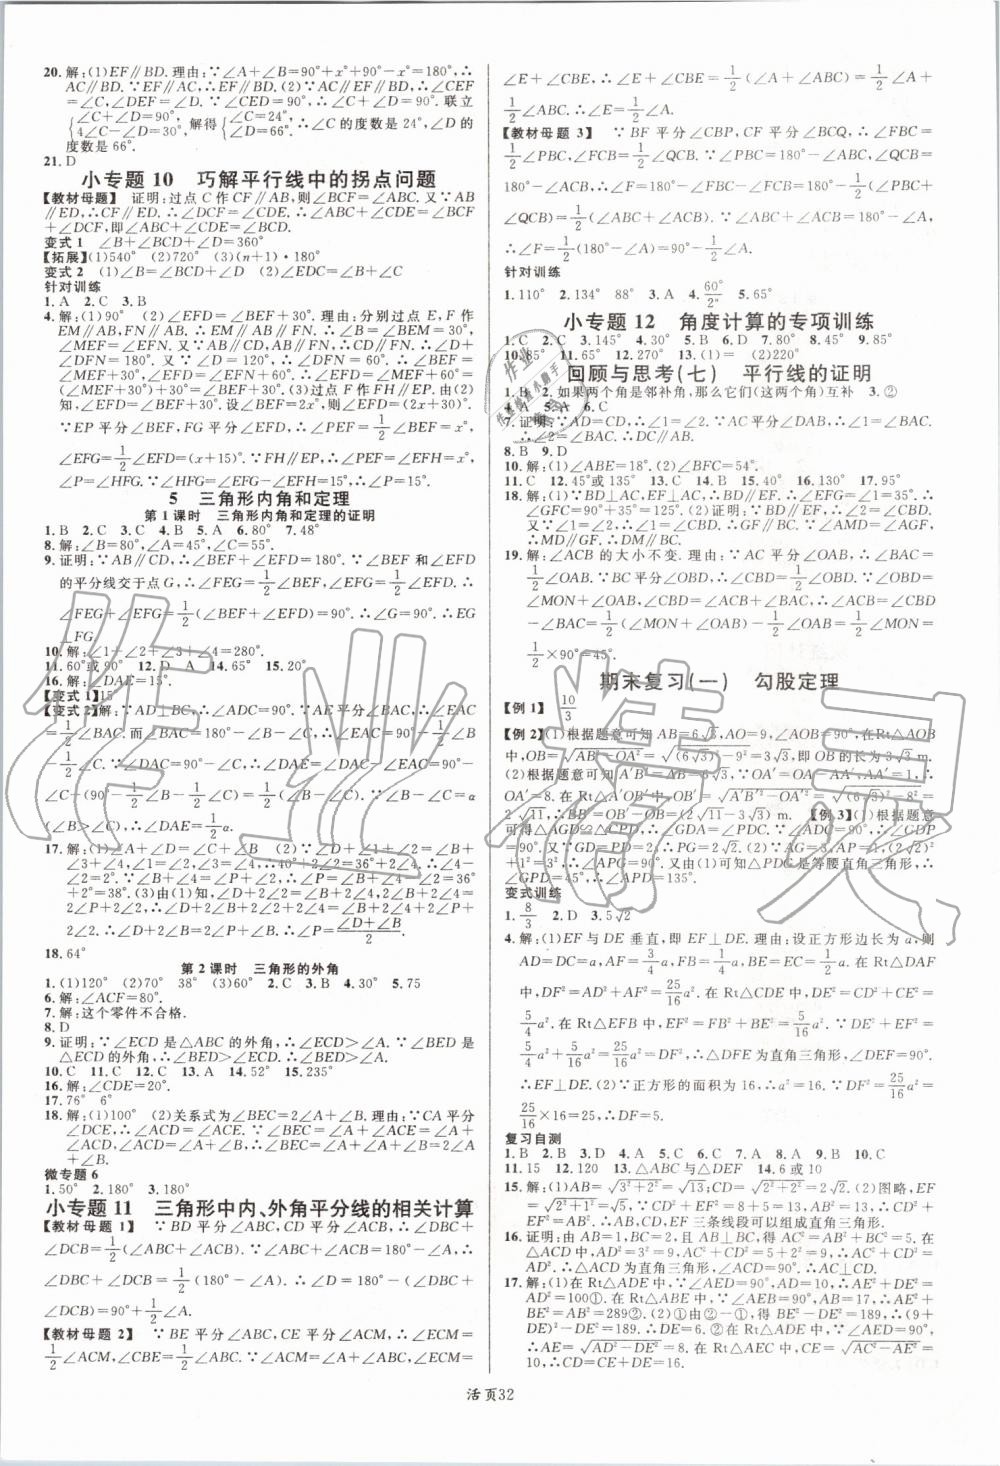 20.解:(1)EF∥BD.理由:∵∠A+∠B=90°+x°+90°-x°=180°,∴
AC∥BD.∵EF∥AC,∴EF∥BD.(2)∵AC∥EF∥BD,∴∠CEF
=∠C,∠DEF=∠D.∵∠CED=90°,∴∠C+∠D=90°.联立
{∠C+∠D=90°, 4∠C-∠D=30°, 解得{∠C=24°, ∠D=66°. ∴∠C的度数是24°,∠D的
度数是66°.
21.D
小专题10 巧解平行线中的拐点问题
【教材母题】 证明:过点C作CF∥AB,则∠BCF=∠ABC.又∵AB
∥ED,∴CF∥ED.∴∠DCF=∠CDE.∴∠ABC+∠CDE=∠BCF
+∠DCF,即∠ABC+∠CDE=∠BCD.
变式1 ∠B+∠BCD+∠D=360°
【拓展】(1)540° (2)720° (3)(n+1)·180°
变式2 (1)∠B=∠BCD+∠D (2)∠EDC=∠B+∠C
针对训练
1.A 2.C 3.B
4.解:(1)90° (2)∠EFD=∠BEF+30°.理由:分别过点E,F作
EM∥AB,FN∥AB,∴EM∥AB∥FN.∴∠B=∠BEM=30°,
∠MEF=∠EFN.又∵AB∥CD,AB∥FN,∴CD∥FN.∴∠D+
∠DFN=180°.又∵∠D=120°,∴∠DFN=60°.∴∠BEF=
∠MEF+30°,∠EFD=∠EFN+60°.∴∠EFD=∠MEF+60°=
(∠MEF+30°)+30°=∠BEF+30°.(3)过点F作FH∥EP.由(2)
知,∠EFD=∠BEF+30°.设∠BEF=2x°,则∠EFD=(2x+30)°.
∵EP平分∠BEF,FG平分∠EFD,∴∠PEF=1/2∠BEF=x°,
∠EFG=1/2∠EFD=(x+15)°.∵FH∥EP,∴∠PEF=∠EFH=x°,
∠P=∠HFG.∵∠HFG=∠EFG-∠EFH=15°,∴∠P=15°.
5 三角形内角和定理
第1课时 三角形内角和定理的证明
1.B 2.C 3.C 4.B 5.A 6.80° 7.48°
8.解:∠B=80°,∠A=45°,∠C=55°.
9.证明:∵AB∥CD,∴∠BEF+∠EFD=180°.∵∠BEF和∠EFD
的平分线交于点G,∴∠FEG=1/2∠BEF,∠EFG=1/2∠EFD.∴
∠FEG+∠EFG=1/2(∠BEF+∠EFD)=90°.∴∠G=90°.∴EG
⊥FG.
10.解:∠1+∠2+∠3+∠4=280°.
11.60°或90° 12.D 13.A 14.65° 15.20°
16.解:∠DAE=15°.
【变式1】15°
【变式2】解:∵AD⊥BC,∴∠ADC=90°.∵AE平分∠BAC,∴∠EAC=
1/2∠BAC.而∠BAC=180°-∠B-∠C,∴∠EAC=90°-1/2∠B
-1/2∠C.∵∠DAC=90°-∠C,∴∠DAE=∠DAC-∠EAC=90°-
∠C-(90°-1/2∠B-1/2∠C)=1/2(∠B-∠C).∵∠B-∠C=α
(∠B>∠C),∴∠DAE=1/2α.
17.解:(1)∠A+∠D=∠C+∠B (2)∵∠D+∠1+∠2=∠B+
∠3+∠4,∠1=∠2,∠3=∠4,∴40°+2∠2=36°+2∠4.∴∠4-
∠2=2°.∵∠D+∠2=∠P+∠4,∴∠P=∠D+∠2-∠4=36°
+2°=38°.(3)由(1)知,∠D+2∠2=∠B+2∠4,∠D+∠2=
∠P+∠4,∴∠D+∠2∠B+2∠2+2∠4=2∠P+∠B+2∠4+
2∠P+2∠2,∴∠D+∠B=2∠P.∴∠P=(∠D+∠B)/2.
18.64°
第2课时 三角形的外角
1.(1)120° (2)70° 38° (3)60° 2.C 3.B 4.30° 5.75
6.解:∠ACF=80°.
7.解:这个零件不合格.
8.D
9.证明:∵∠ECD是△ABC的外角,∴∠ECD>∠A.∵∠BED是
△ECD的外角,∴∠BED>∠ECD.∴∠BED>∠A.
10.C 11.C 12.C 13.A 14.52° 15.235°
16.解:∠CDE=20°.
17.76° 6°
18.解:(1)100° (2)关系式为∠BEC=2∠A+∠B.理由:∵CA平分
∠DCE,∴∠ACD=∠ACE.∵∠BEC=∠A+∠ACE=∠A+
∠ACD,∠ACD=∠A+∠B,∴∠BEC=∠A+∠A+∠B=2∠A
+∠B.
微专题6
1.50° 2.180° 3.180°
小专题11 三角形中内、外角平分线的相关计算
【教材母题1】 ∵BD平分∠ABC,CD平分∠ACB,∴∠DBC+
∠DCB=1/2(∠ABC+∠ACB).∵∠ABC+∠ACB=180°-∠A,∴
∠DBC+∠DCB=1/2(180°-∠A).∴∠D=180°-(∠DBC+
∠DCB)=90°+1/2∠A.
【教材母题2】 ∵BE平分∠ABC,CE平分∠ACM,∴∠ECM=
1/2∠ACM,∠CBE=1/2∠ABC.∵∠ACM=∠A+∠ABC,∠ECM=
∠E+∠CBE,∴∠E+∠CBE=1/2(∠A+∠ABC)=1/2∠A+
1/2∠ABC.∴∠E=1/2∠A.
【教材母题3】 ∵BF平分∠CBP,CF平分∠BCQ,∴∠FBC=
1/2∠PBC,∠FCB=1/2∠QCB.∵∠PBC=180°-∠ABC,∠QCB=
180°-∠ACB,∴∠F=180°-∠FBC-∠FCB=180°-1/2(∠PBC+
∠QCB)=1/2(∠ABC+∠ACB).∵∠ABC+∠ACB=180°-∠A,
∴∠F=1/2(180°-∠A)=90°-1/2∠A.
针对训练
1.110° 2.134° 88° 3.A 4.60°/2ⁿ 5.65°
小专题12 角度计算的专项训练
1.C 2.C 3.145° 4.30° 5.B 6.D 7.80° 8.45° 9.85°
10.85° 11.65° 12.270° 13.(1)= (2)220°
回顾与思考(七) 平行线的证明
1.B 2.如果两个角是邻补角,那么它们(这两个角)互补 3.②
4.A 5.A 6.C
7.证明:∵AD=CD,∴∠1=∠2.∵AC平分∠DAB,∴∠1=
∠BAC.∴∠2=∠BAC.∴DC∥AB.
8.B 9.D
10.解:(1)∠ABE=18°.(2)∠BFC=54°.
11.C 12.45°或135° 13.C 14.B 15.40° 16.130° 17.95°
18.解:(1)∵BD⊥AC,EF⊥AC,∴BD∥EF.∴∠EFG=∠1=35°.∴
∠GFC=90°+35°=125°.(2)∵BD∥EF,∴∠2=∠CBD.
又∵∠1=∠2,∴∠1=∠CBD.∴GF∥BC.∵∠AMD=∠AGF,
∴MD∥GF.∴MD∥BC.
19.解:∠ACB的大小不变.理由:∵AC平分∠OAB,∴∠BAC=
1/2∠OAB.∵BC平分∠CBD,∴∠CBD=1/2∠OBD.∵∠OBD=
∠MON+∠OAB,∠CBD=∠ACB+∠BAC,∴∠ACB=
∠CBD-∠BAC=1/2(∠MON+∠OAB)-1/2∠OAB=1/2∠MON=
1/2×90°=45°.
期末复习(一) 勾股定理
【例1】 10/3
【例2】(1)根据题意可知AB=6√3,AO=9,∠AOB=90°,在Rt△AOB
中,OB=√(AB²-OA²)=√((6√3)²-9²)=3√3,即OB的长为3√3 m.
(2)根据题意可知A'B'=AB=6√3,∵OA'=OA-AA',AA'=1,∴
OA'=8.在Rt△A'OB'中,OB'=√(A'B'²-OA'²)=√((6√3)²-8²)=
2√11,∴BB'=OB'-OB=(2√11-3√3) m. 【例3】(1)根据题意
可得△AGD≌△CPD,∴∠GDA=∠PDC.∵∠ADC=90°,∴
∠GDP=90°.∵GD=PD=2,∴GP=2√2.
+1²=3²,∴∠APG=90°.由(1)可知△PDG是等腰直角三角形,∴
∠GPD=45°,∴∠APD=135°.
变式训练
1.8/3 2.D 3.5√2
4.解:(1)EF与DE垂直,即EF⊥DE.理由:设正方形边长为a,则
AD=DC=a,AF=3/4a,FB=1/4a,AE=BE=EC=1/2a.在Rt△DAF
中,DF²=AD²+AF²=25/16a².在Rt△CDE中,DE²=CD²+CE²=
5/4a².在Rt△EFB中,EF²=FB²+BE²=5/16a².∵DE²+EF²=
5/4a²+5/16a²=25/16a²=DF²,∴△DFE为直角三角形,∠DEF=90°.
∴EF⊥DE.(2)∵正方形的面积为16,∴a²=16.∴DF²=25/16a²=
25/16×16=25.∴DF=5.
复习自测
1.A 2.B 3.B 4.A 5.B 6.C 7.A 8.A 9.B 10.C
11.15 12.120 13.△ABC与△DEF 14.6或10
15.解:(1)AB=√(3²+2²)=√13;CD=√(2²+2²)=2√2.(2)图略,EF
=√(1²+2²)=√5.∵CD²+EF²=8+5=13,AB²=13,∴CD²+
EF²=AB².∴AB,CD,EF三条线段可以组成直角三角形.
16.证明:由AB=1,BC=2,且AB⊥BC,得AC²=AB²+BC²=5.在
△ACD中,AD²=3²=9,AC²+CD²=5+2²=9,∴AC²+CD²=
AD².∴△ACD为直角三角形,∠ACD=90°.∴AC⊥CD.
17.解:(1)在Rt△ADE中,∵∠AED=90°,AD=10,∴AE²+DE²=
AD²=100①.在Rt△ABE中,∵∠AEB=90°,AB=17,∴AE²+
BE²=AB²=289②.(2)①由②-①,得BE²-DE²=189,∴(DE+9)²
-DE²=189.∴DE=6.②∵DE=6,AD=10,∵∠AED=90°,∴
AE=√(AD²-DE²)=8.在Rt△AEC中,CE=√(AC²-AE²)=
10,∴CD=CE+DE=16.
活页32
作业精灵